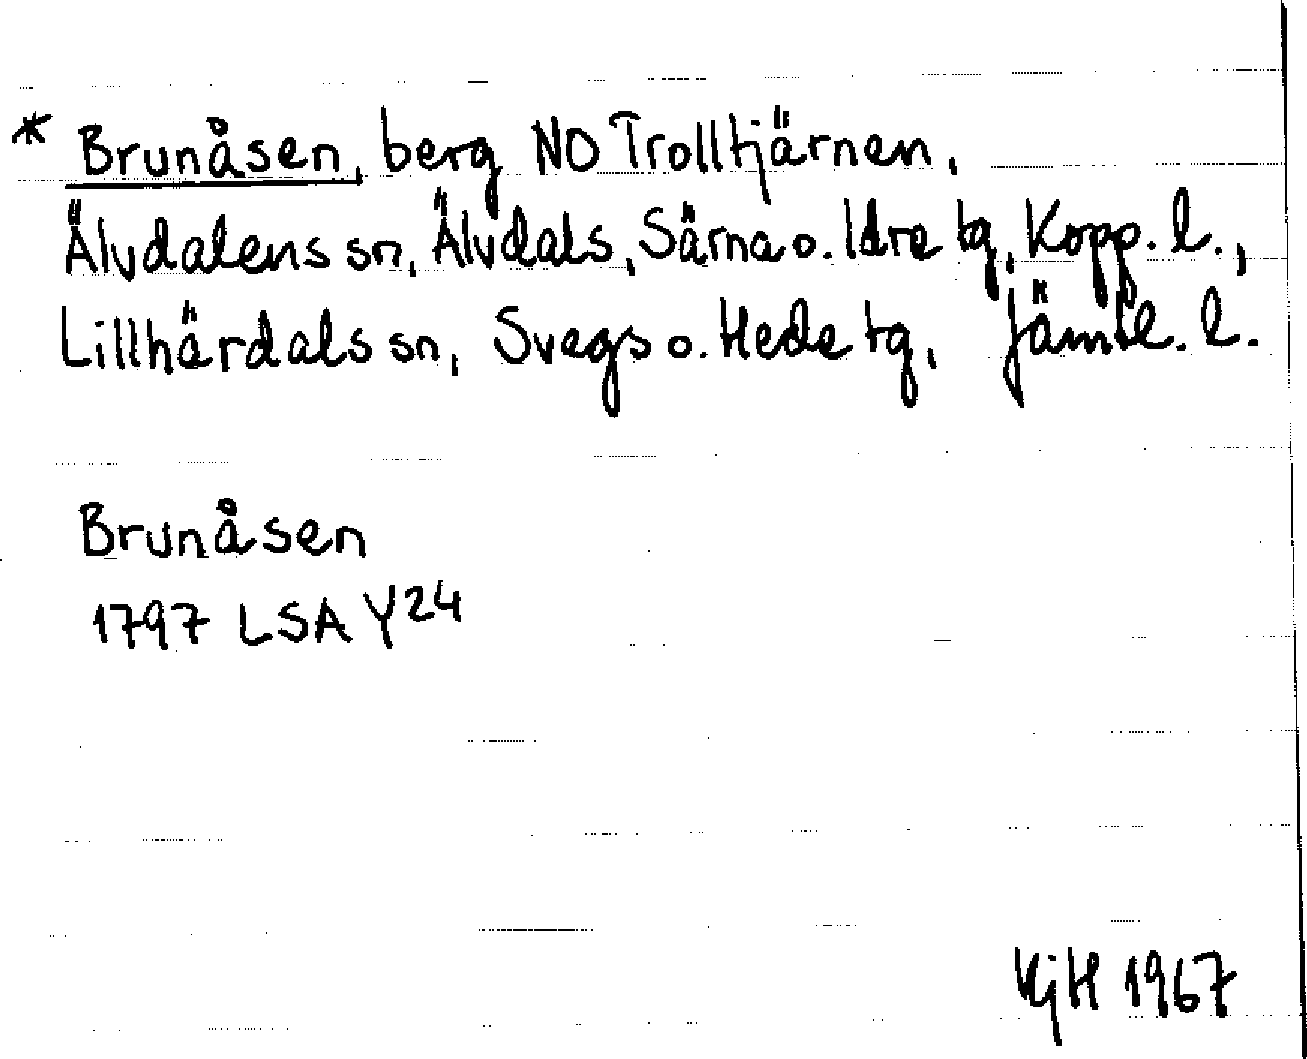 * Brunåsen, berg NO Trolltjärnen,
Älvdalens sn, Älvdals, Särna o. Idre tg, Kopp. l.,
Lillhärdals sn, Svegs o. Hede tg, Jämtl. l.
Brunåsen
1797 LSA Y24
KjH 1967